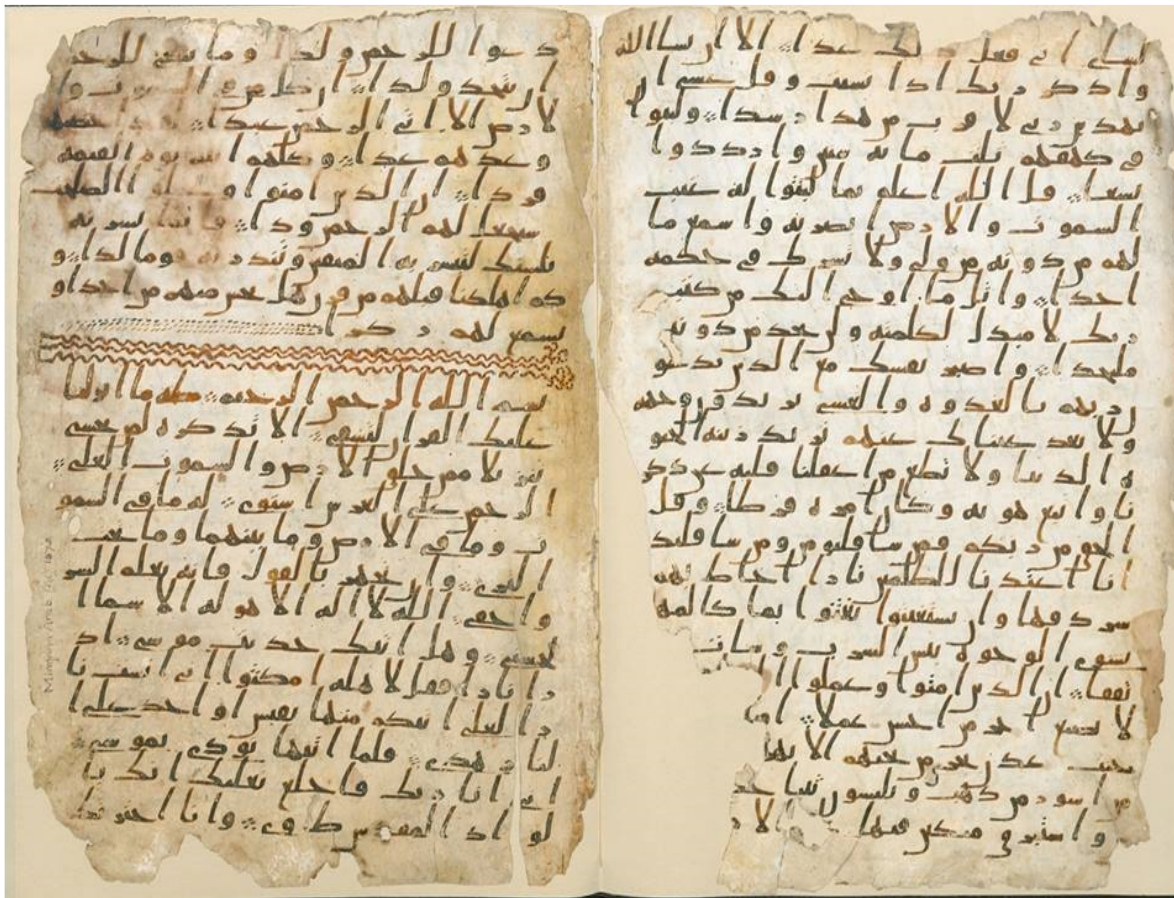 لشاى انى فعل ذلك غدا الا ان يشا الله
واذكر ربك اذا نسيت وقل عسى ان
يهدين ربى لاقرب من هذا رشدا ولبثوا
فى كهفهم ثلث مائه سنين وازددوا
تسعا قل الله اعلم بما لبثوا له غيب
السموت والارض ابصر به واسمع ما
لهم من دونه من ولى ولا يشرك فى حكمه
احدا واتل ما اوحى اليك من كتب
ربك لا مبدل لكلمته ولن تجد من دونه
ملتحدا واصبر نفسك مع الذين يدعو
ن ربهم بالغدوه والعشى يريدون وجهه
ولا تعد عيناك عنهم تريد زينه الحيو
ه الدنيا ولا تطع من اغفلنا قلبه عن ذكر
نا واتبع هويه وكان امره فرطا وقل
الحق من ربكم فمن شا فليومن ومن شا فليكفر
انا اعتدنا للظلمين نارا احاط بهم
سردقها وان يستغيثوا يغثوا بما كالمهل
يشوى الوجوه بئس الشرب وسات
تفقا ان الذين امنوا وعملوا ا
لا نضيع اجر من احسن عملا
جنت عدن تجرى من تحتهم الانهر
من اسور من ذهب ويلبسون ثيابا خ
واستبرق متكين فيها الار
دعوا للرحمن ولدا وما ينبغى للرحمن
ان يتخذ ولدا ان كل من فى السموت وا
لارض الا اتى الرحمن عبدا لقد احصهم
وعدهم عدا وكلهم اتيه يوم القيمه
فردا ان الذين امنوا وعملوا الصلحت
سيجعل لهم الرحمن ودا فانما يسرنه
بلسنك لتبشر به المتقين وتنذر به قوما لدا و
كم اهلكنا قبلهم من قرن هل تحس منهم من احد او
تسمع لهم ركزا
بسم الله الرحمن الرحيم طه ما انزلنا
عليك القران لتشقى الا تذكره لمن يخشى
تنزيلا ممن خلق الارض والسموت العلى
الرحمن على العرش استوى له ما فى السمو
ت وما فى الارض وما بينهما وما تحت
الثرى وان تجهر بالقول فانه يعلم السر
واخفى الله لا اله الا هو له الاسما ا
لحسنى وهل اتيك حديث موسى اذ
را نارا فقل لاهله امكثوا انى انست نا
را لعلى اتيكم منها بقبس او اجد على ا
لنار هدى فلما اتيها نودى يموسى
انى انا ربك فاخلع نعليك انك با
لواد المقدس طوى وانا اخترتك